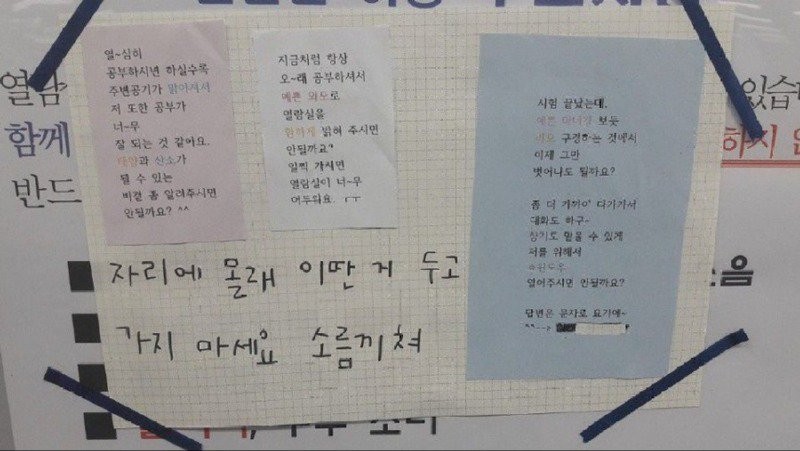 열~심히
공부하시면 하실수록
주변공기가 맑아져서
저 또한 공부가
너~무
잘 되는 것 같아요.
태양과 산소가
될 수 있는
비결 좀 알려주시면
안될까요? ^^
지금처럼 항상
오~래 공부하셔서
예쁜 외모로
열람실을
환하게 밝혀 주시면
안될까요?
일찍 가시면
열람실이 너~무
어두워요 ㅠ
시험 끝났는데,
보듯
구경하는 것에서
이제 그만
벗어나도 될까요?
좀 더 가까이 다가가서
대화도 하구~
향기도 맡을 수 있게
저를 위해서
열어주시면 안될까요?
답변은 문자로 요기에~
^^-->
자리에 몰래 이딴 거 두고
가지 마세요 소름끼쳐
열람
함께
반드
있습
하지 않
소음